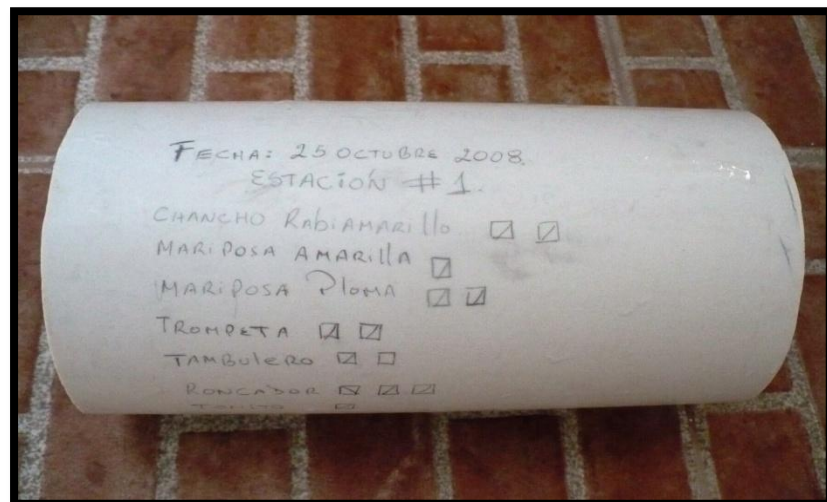 FECHA: 25 OCTUBRE 2008.
ESTACIÓN #1.
CHANCHO RABIAMARILLO
MARIPOSA AMARILLA
MARIPOSA PLOMA
TROMPETA
TAMBULERO
RONCADOR